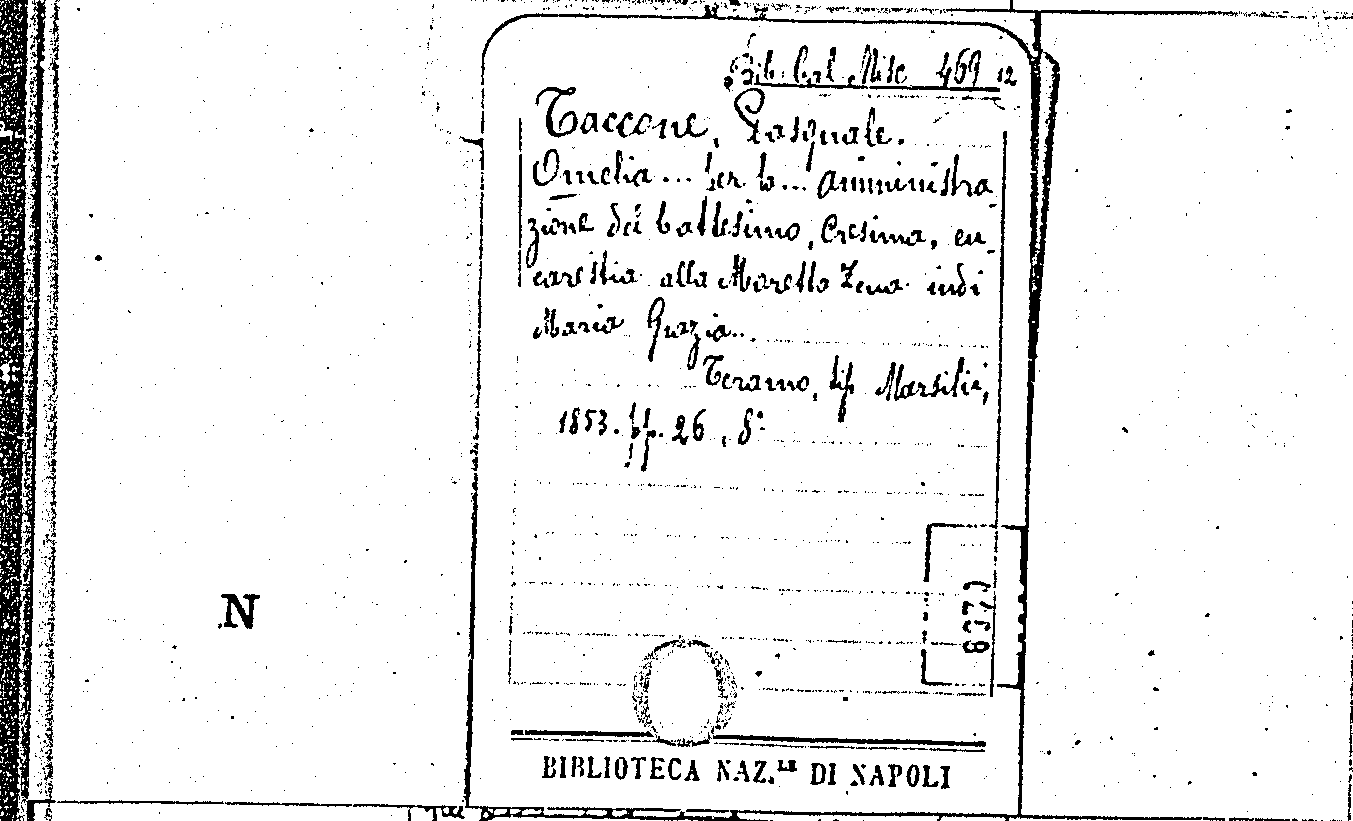 Bib. Cal. Misc 469 12
Taccone, Pasquale.
Omelia... per la... amministra-
zione del battesimo, cresima, eu-
carestia alla Moretta Zena indi
Maria Grazia...
Teramo, tip Marsilii,
1853. pp. 26, 8°
8370
N
BIBLIOTECA NAZ.LE DI NAPOLI